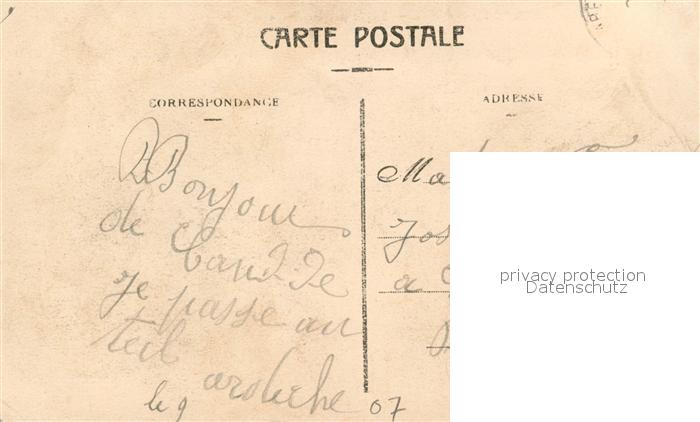 CARTE POSTALE
CORRESPONDANCE
ADRESSE
Bonjour
de
Je passe au
teil
ardeche
le 9
07
Ma
Jos
a
privacy protection
Datenschutz